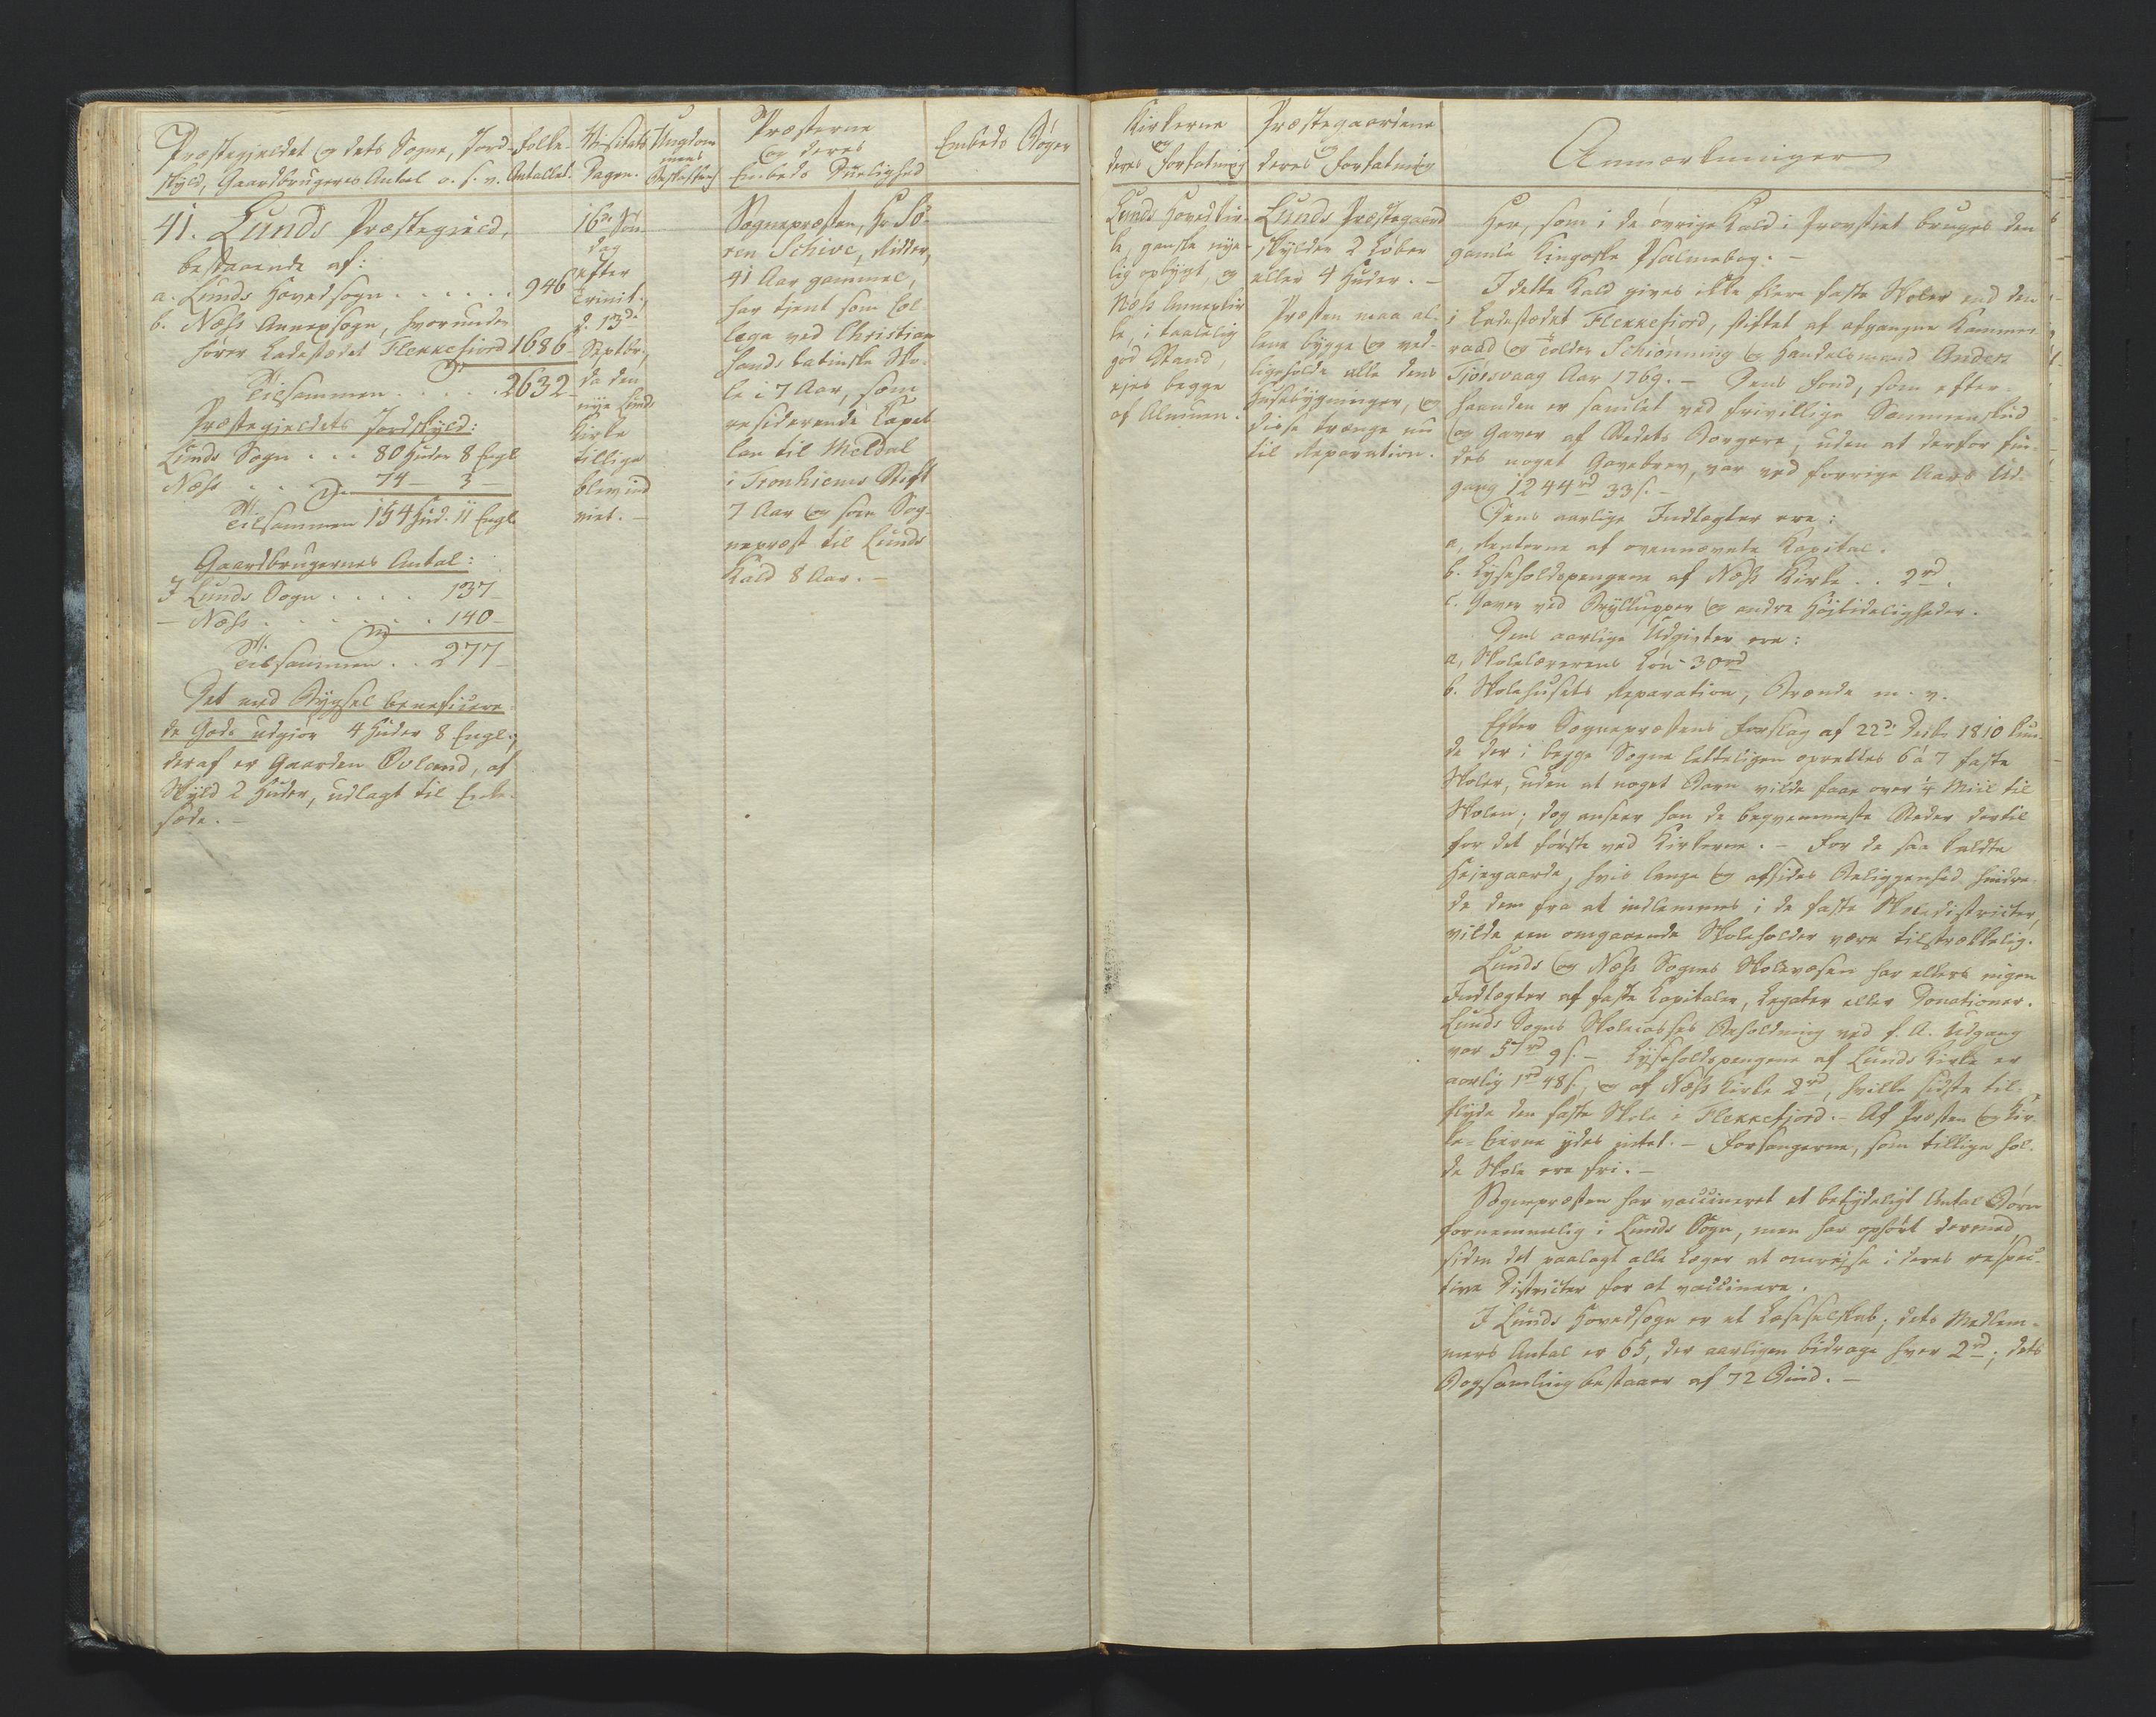 Præstegjeldet og dets Sogne, Jord-
skyld, Gaardbrugeres Antal o. s. v.
Folke-
Antallet.
Visitats
Dagen.
Ungdom
mens
Beskaffenh
Præsterne
og deres
Embeds Duelighed
Embeds Bøger
41. Lunds Præstegield,
bestaaende af:
a. Lunds Hovedsogn . . . . . . 946
b. Næss Annexsogn, hvorunder
hører Ladestædet Flekkefiord 1686
Tilsammen . . . . . 2632
Præstegjeldets Jordskyld:
Lunds Sogn . . . 80 Huder 8 Engl
Næss . . . 74 — 3 —
Tilsammen 154 Hud. 11 Engl.
Gaardbrugernes Antal:
I Lunds Sogn . . . . 137
— Næss . . . . . . . 140
Tilsammen . . 277
Det med Bygsel beneficere-
de Gods udgiør 4 Huder 8 Engl.,
deraf er Gaarden Ovland, af
Skyld 2 Huder, udlagt til Enke-
sæde. —
16de Søn-
dag
efter
Trinit.,
d. 13de
Septbr.,
da den
nye Lunds
Kirke
tillige
blev ind
viet. —
Sognepræsten, Hr Sø-
ren Schive, Ridder,
41 Aar gammel,
har tient som Col-
lega ved Christian
sands latinske Sko-
le i 7 Aar, som
residerende Capel
lan til Meldal
i Tronhiems Stift
7 Aar og som Sog-
nepræst til Lunds
Kald 8 Aar. —
Kirkerne
og
deres Forfatning
Lunds Hovedkir-
ke, ganske nye-
lig opbygt, og
Næss Annexkir
ke, i taalelig
god Stand,
ejes begge
af Almuen.
Præstegaardene
og
deres Forfatning
Lunds Præstegaard
skylder 2 Løber
eller 4 Huder. —
Præsten maa al-
lene bygge og ved-
ligeholde alle dens
Husebygninger, og
disse trænge nu
til Reparation.
Anmærkninger
Her, som i de øvrige Kald i Provstiet bruges den
gamle Kingoske Psalmebog. —
I dette Kald gives ikke fleere faste Skoler end den
i Ladestædet Flekkefiord, stiftet af afgangne Kammer
raad og Tolder Schiønning og Handelsmand Anders
Tjorsvaag Aar 1769. — Dens Fond, som efter-
haanden er samlet ved frivillige Sammenskud
og Gaver af Stedets Borgere, uden at derfor fin-
des noget Gavebrev, var ved forrige Aars Ud-
gang 1244 rd 33 s. —
Dens aarlige Indtægter ere:
a, Renterne af ovennævnte Kapital.
b. Lyseholdspengene af Næss Kirke . . 2 rd.
c. Gaver ved Bryllupper og andre Højtideligheder.
Dens aarlige Udgivter ere:
a, Skolelærerens Løn - 30 rd
b. Skolehusets Reparation, Brænde m. v.
Efter Sognepræstens Forslag af 22de Decbr 1810 kun-
de der i begge Sogne letteligen oprettes 6 à 7 faste
Skoler, uden at noget Barn vilde faae over 1/4 Miil til
Skolen; dog anseer han de beqvemmeste Steder dertil
for det første ved Kirkerne. — For de saa kaldte
Hejegaarde, hvis lange og afsides Beliggenhed hindre-
de dem fra at indlemmes i de faste Skoledistricter,
vilde een omgaaende Skoleholder være tilstrækkelig.
Lunds og Næss Sognes Skolevæsen har ellers ingen
Indtægter af faste Kapitaler, Legater eller Donationer.
Lunds Sogns Skolecasses Beholdning ved f. A. Udgang
var 57 rd 9 s. — Lyseholdspengene af Lunds Kirke er
aarlig 1 rd 48 s., og af Næss Kirke 2 rd, hvilke sidste til-
flyde den faste Skole i Flekkefjord. — Af Præsten og Kir-
ke= ydes intet. — Forsangerne, som tillige hol-
de Skole ere fri. —
Sognepræsten har vaccineret et betydeligt Antal Børn
fornemmelig i Lunds Sogn, men har ophørt dermed
siden det paalagt alle Læger at omrejse i deres respec-
tive Districter for at vaccinere.
I Lunds Hovedsogn er et Læseselskab; dets Medlem-
mers Antal er 65, der aarligen bidrage hver 2 rd; dets
Bogsamling bestaaer af 72 Bind. —